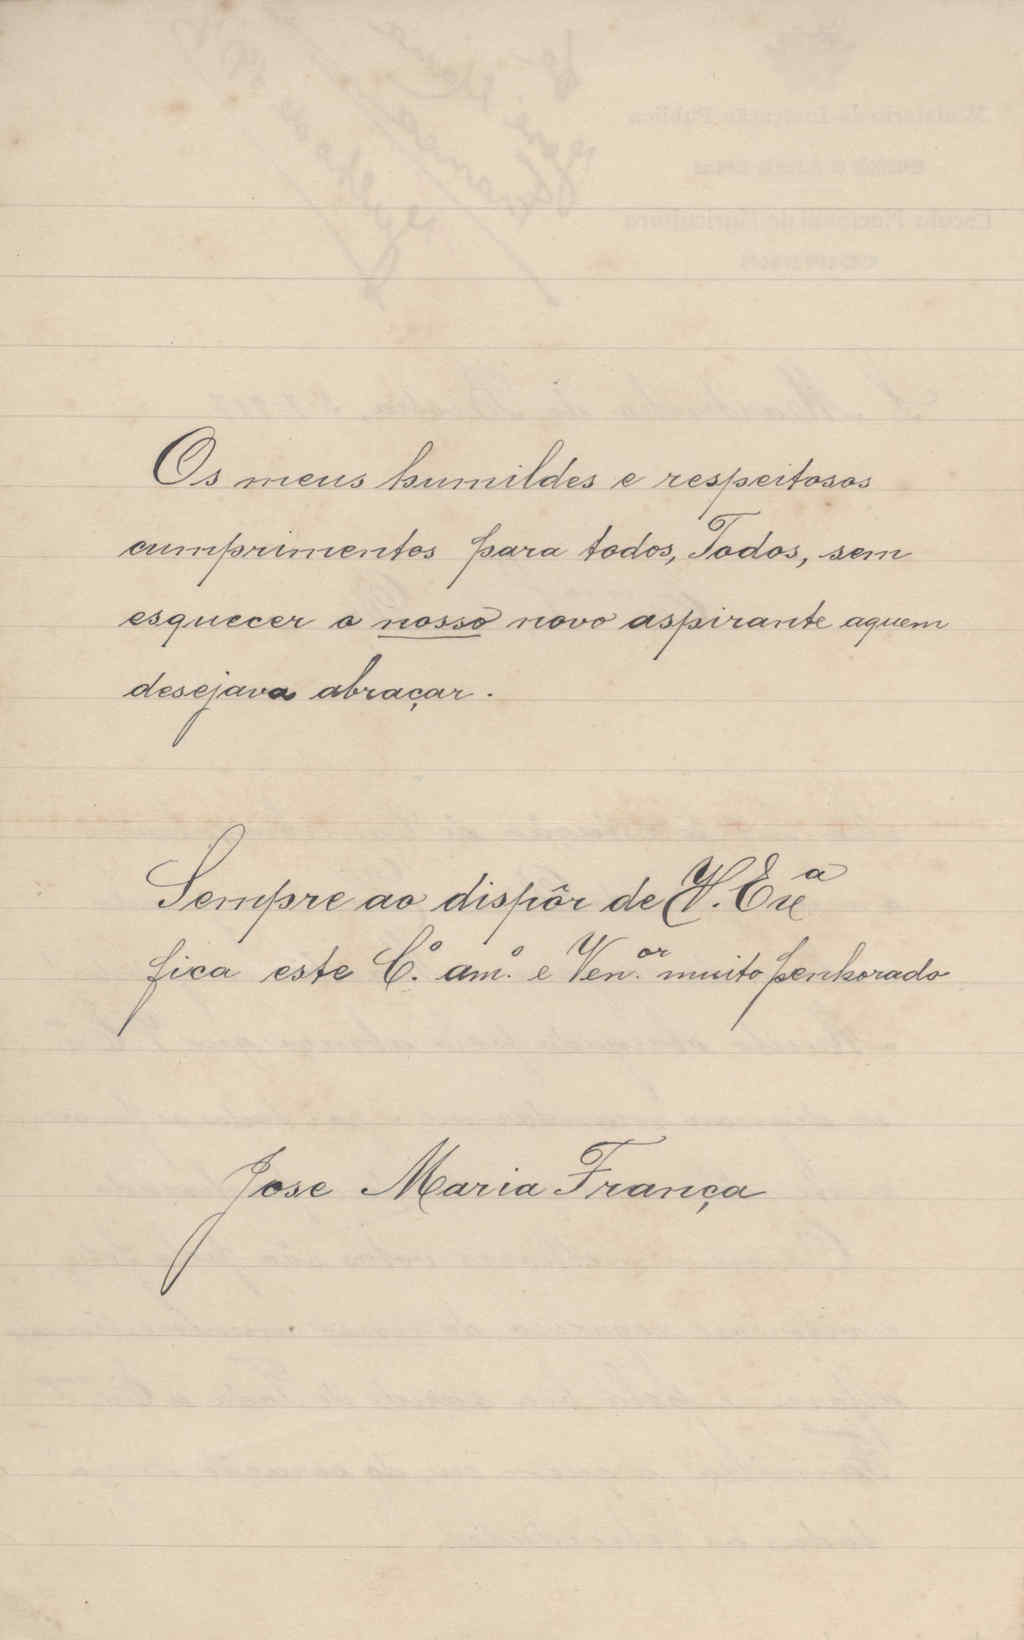 Os meus humildes e respeitosos
cumprimentos para todos, Todos, sem
esquecer o nosso novo aspirante aquem
desejava abraçar.
Sempre ao dispôr de V. Exª
fica este C.º am.º e Ven.or muito penhorado
Jose Maria França